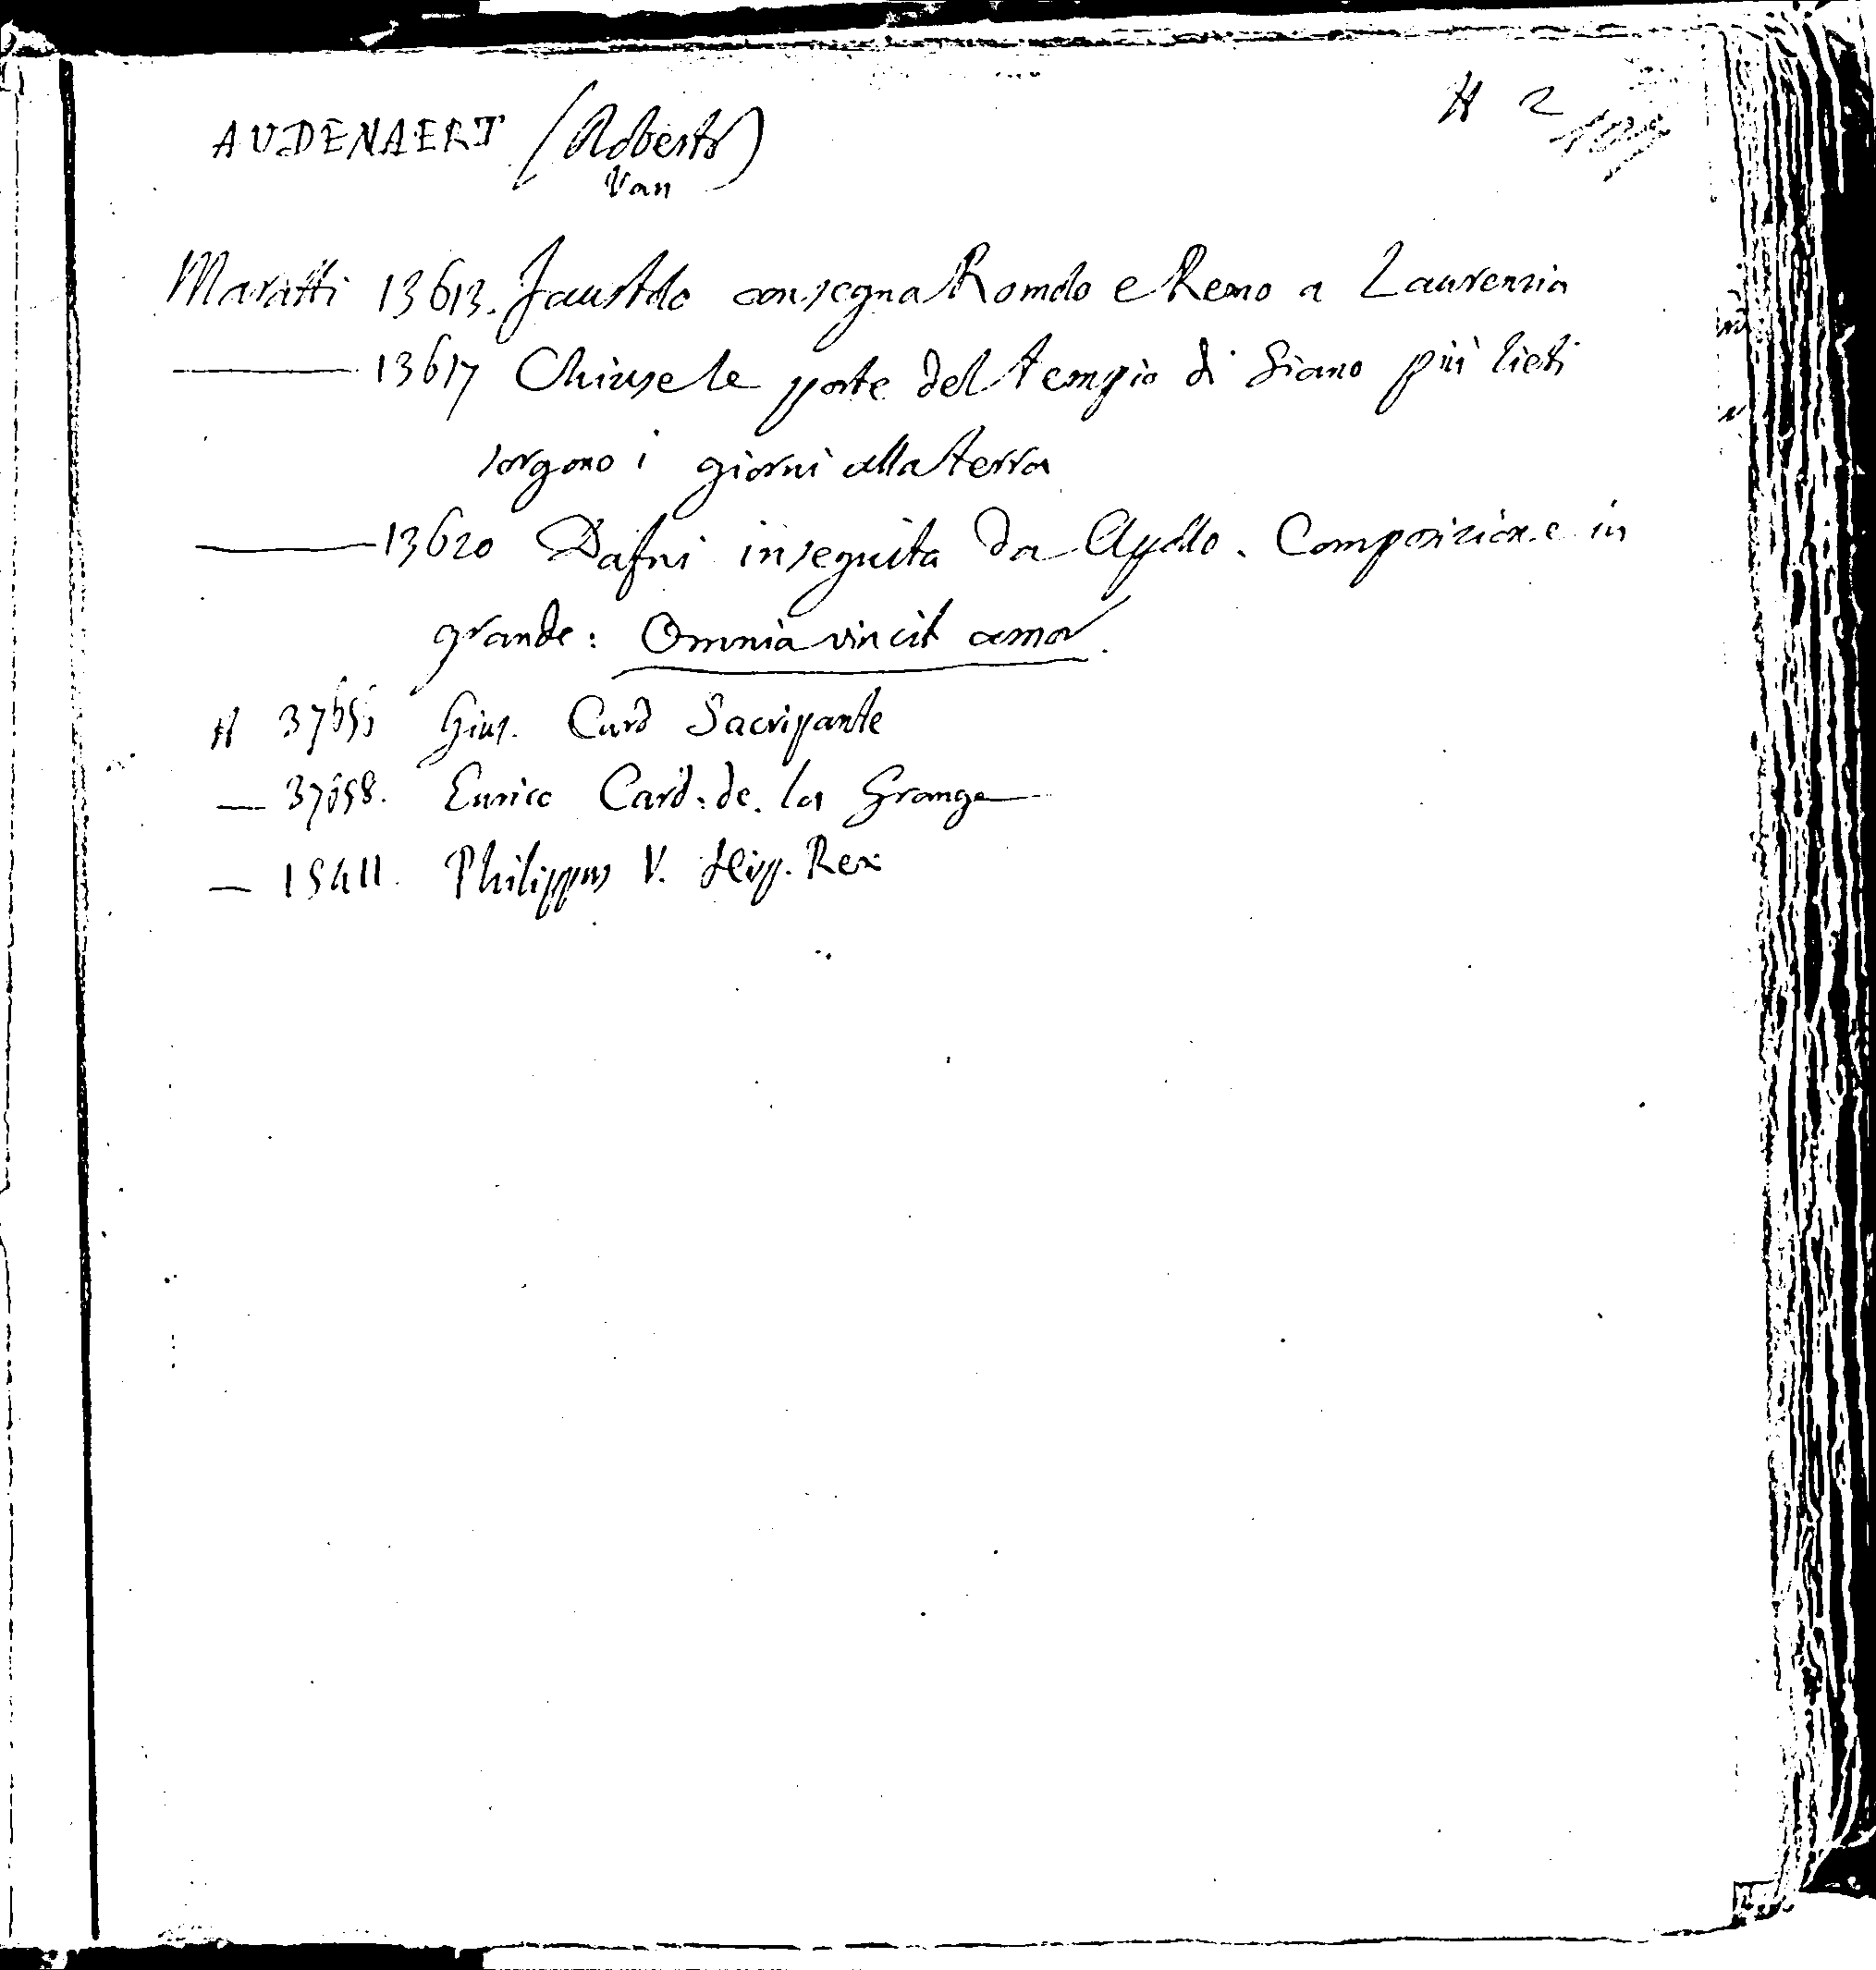 AUDENAERT (Roberto) H 2
Van
Maratti 13613. Faustolo consegna Romolo e Remo a Laurenzia
——— 13617 Chiuse le porte del tempio di Giano più lieti
sorgono i giorni alla terra
——— 13620 Dafni inseguita da Apollo. Composizione in
grande: Omnia vincit amor.
H Gius. Card Sacripante
— 37658. Enrico Card. de. la Grange
— 15411. Philippus V. Hisp. Rex